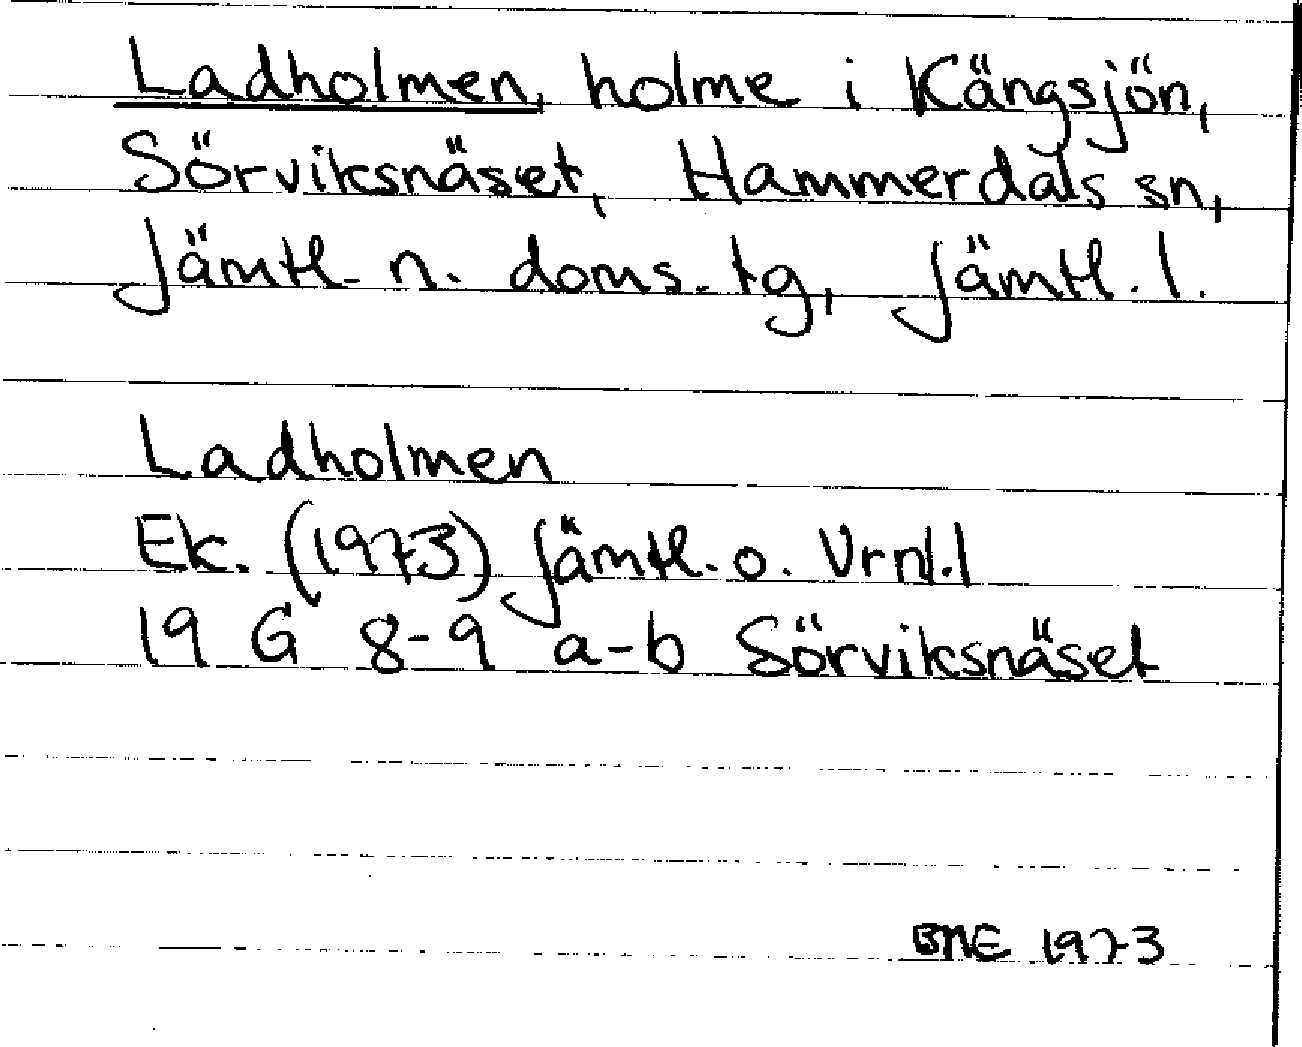 Ladholmen, holme i Kängsjön,
Sörviksnäset, Hammerdals sn,
Jämtl. n. doms. tg, Jämtl. l.
Ladholmen
Ek. (1973) Jämtl. o. Vrml. l
19 G 8-9 a-b Sörviksnäset
BNE 1973